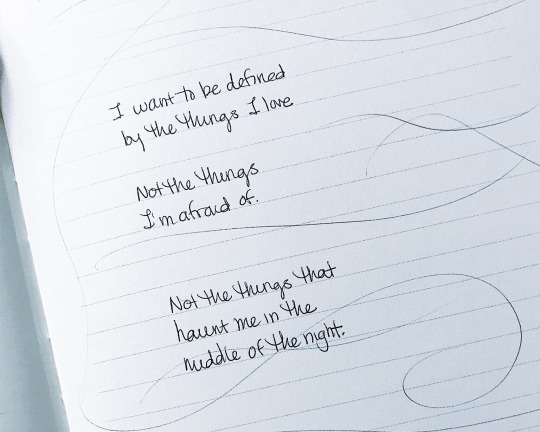 I want to be defined
by the things I love
Not the things
I'm afraid of.
Not the things that
haunt me in the
middle of the night.